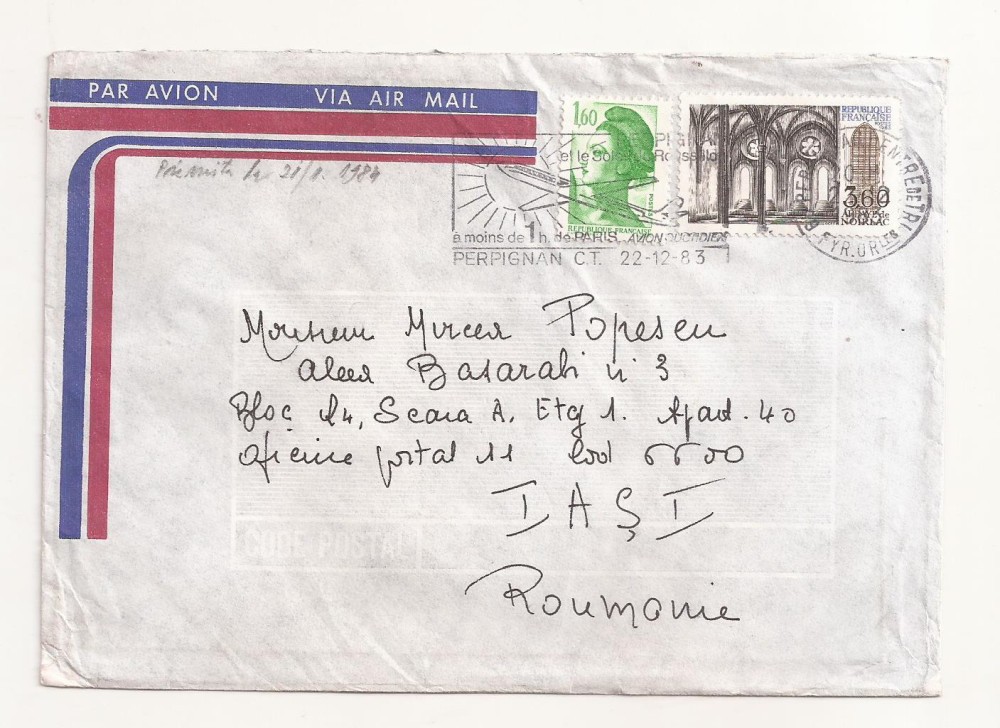 PAR AVION VIA AIR MAIL
1,60
REPUBLIQUE FRANÇAISE
REPUBLIQUE FRANÇAISE
3,60
ABBAYE de NOIRLAC
et le Soleil du Roussillon
à moins de 1 h. de PARIS, AVION QUOTIDIEN
PERPIGNAN C.T. 22-12-83
CENTRE DE TRI
PYR. ORLES
21/1. 1984
Monsieur Mircea Popescu
Aleea Basarabi n 3
Bloc I4, Scara A, Etg 1. Apart. 40
oficiue postal 11 Cod 6600
IAȘI
Roumanie
CODE POSTAL